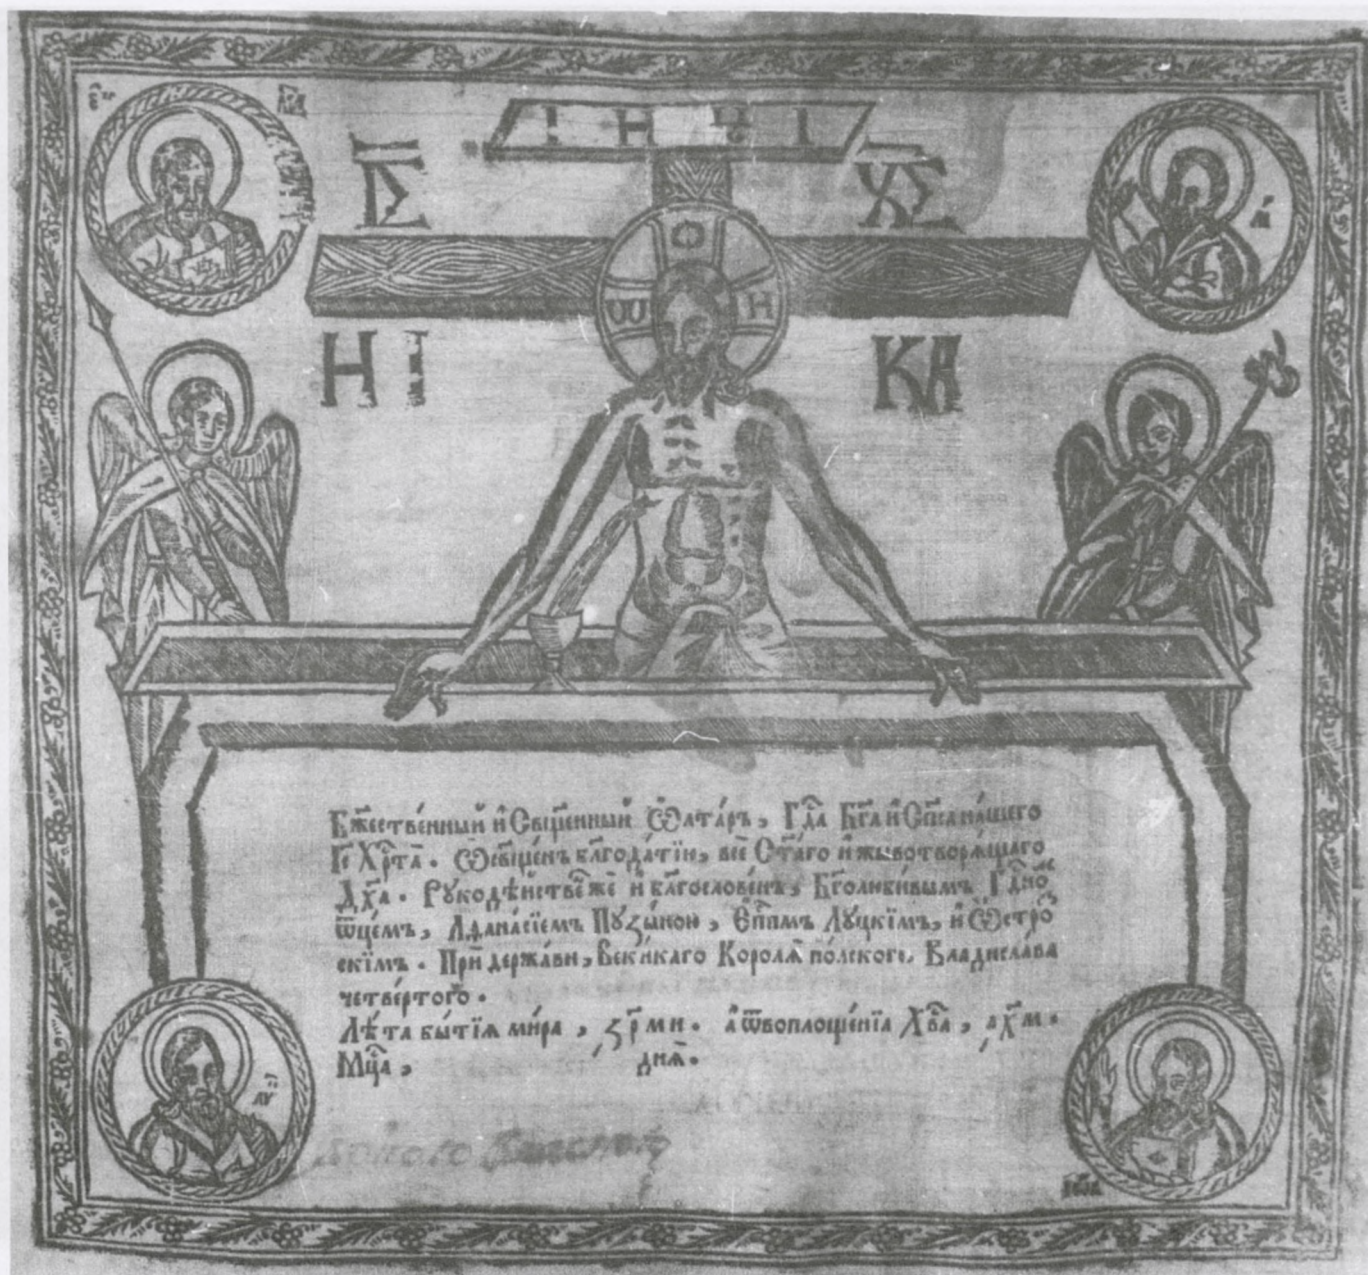 І Н Ц І
ІС ХС
О
ОѠ Н
НІ КА
М
Бжественный и҆ Сщ҃енный Ѻ҆лта́ръ, Гд҃а Бг҃а и҆ Сп҃са на́шего
Іс҃ Хр҃та. Ѡ҆сщ҃е́нъ блг҃ода́тїю, все Ст҃а́го и҆ жывотворѧ́щаго
Дх҃а. Рꙋкодѣ́йстве́ же и҆ блг҃ослове́нъ, Бг҃олюби́вымъ Гд҃номъ
ѿце́мъ, Аѳана́сїемъ Пꙋзы́ною, Е҆пп҃мъ Лꙋцкїмъ, и҆ Ѻ҆стро
скїмъ. При держа́ви, Великаго Королѧ̀ по́лского, Владислава
четве́ртого.
Лѣ́та бытїѧ ми́ра, ҂зрм҃и. а҆ ѿ воплоще́нїа Хв҃а, ҂ах҃м.
Мц҃а, днѧ̀.
ЛУ